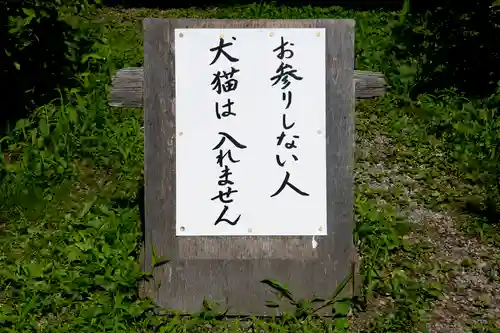 お参りしない人
犬猫は入れません